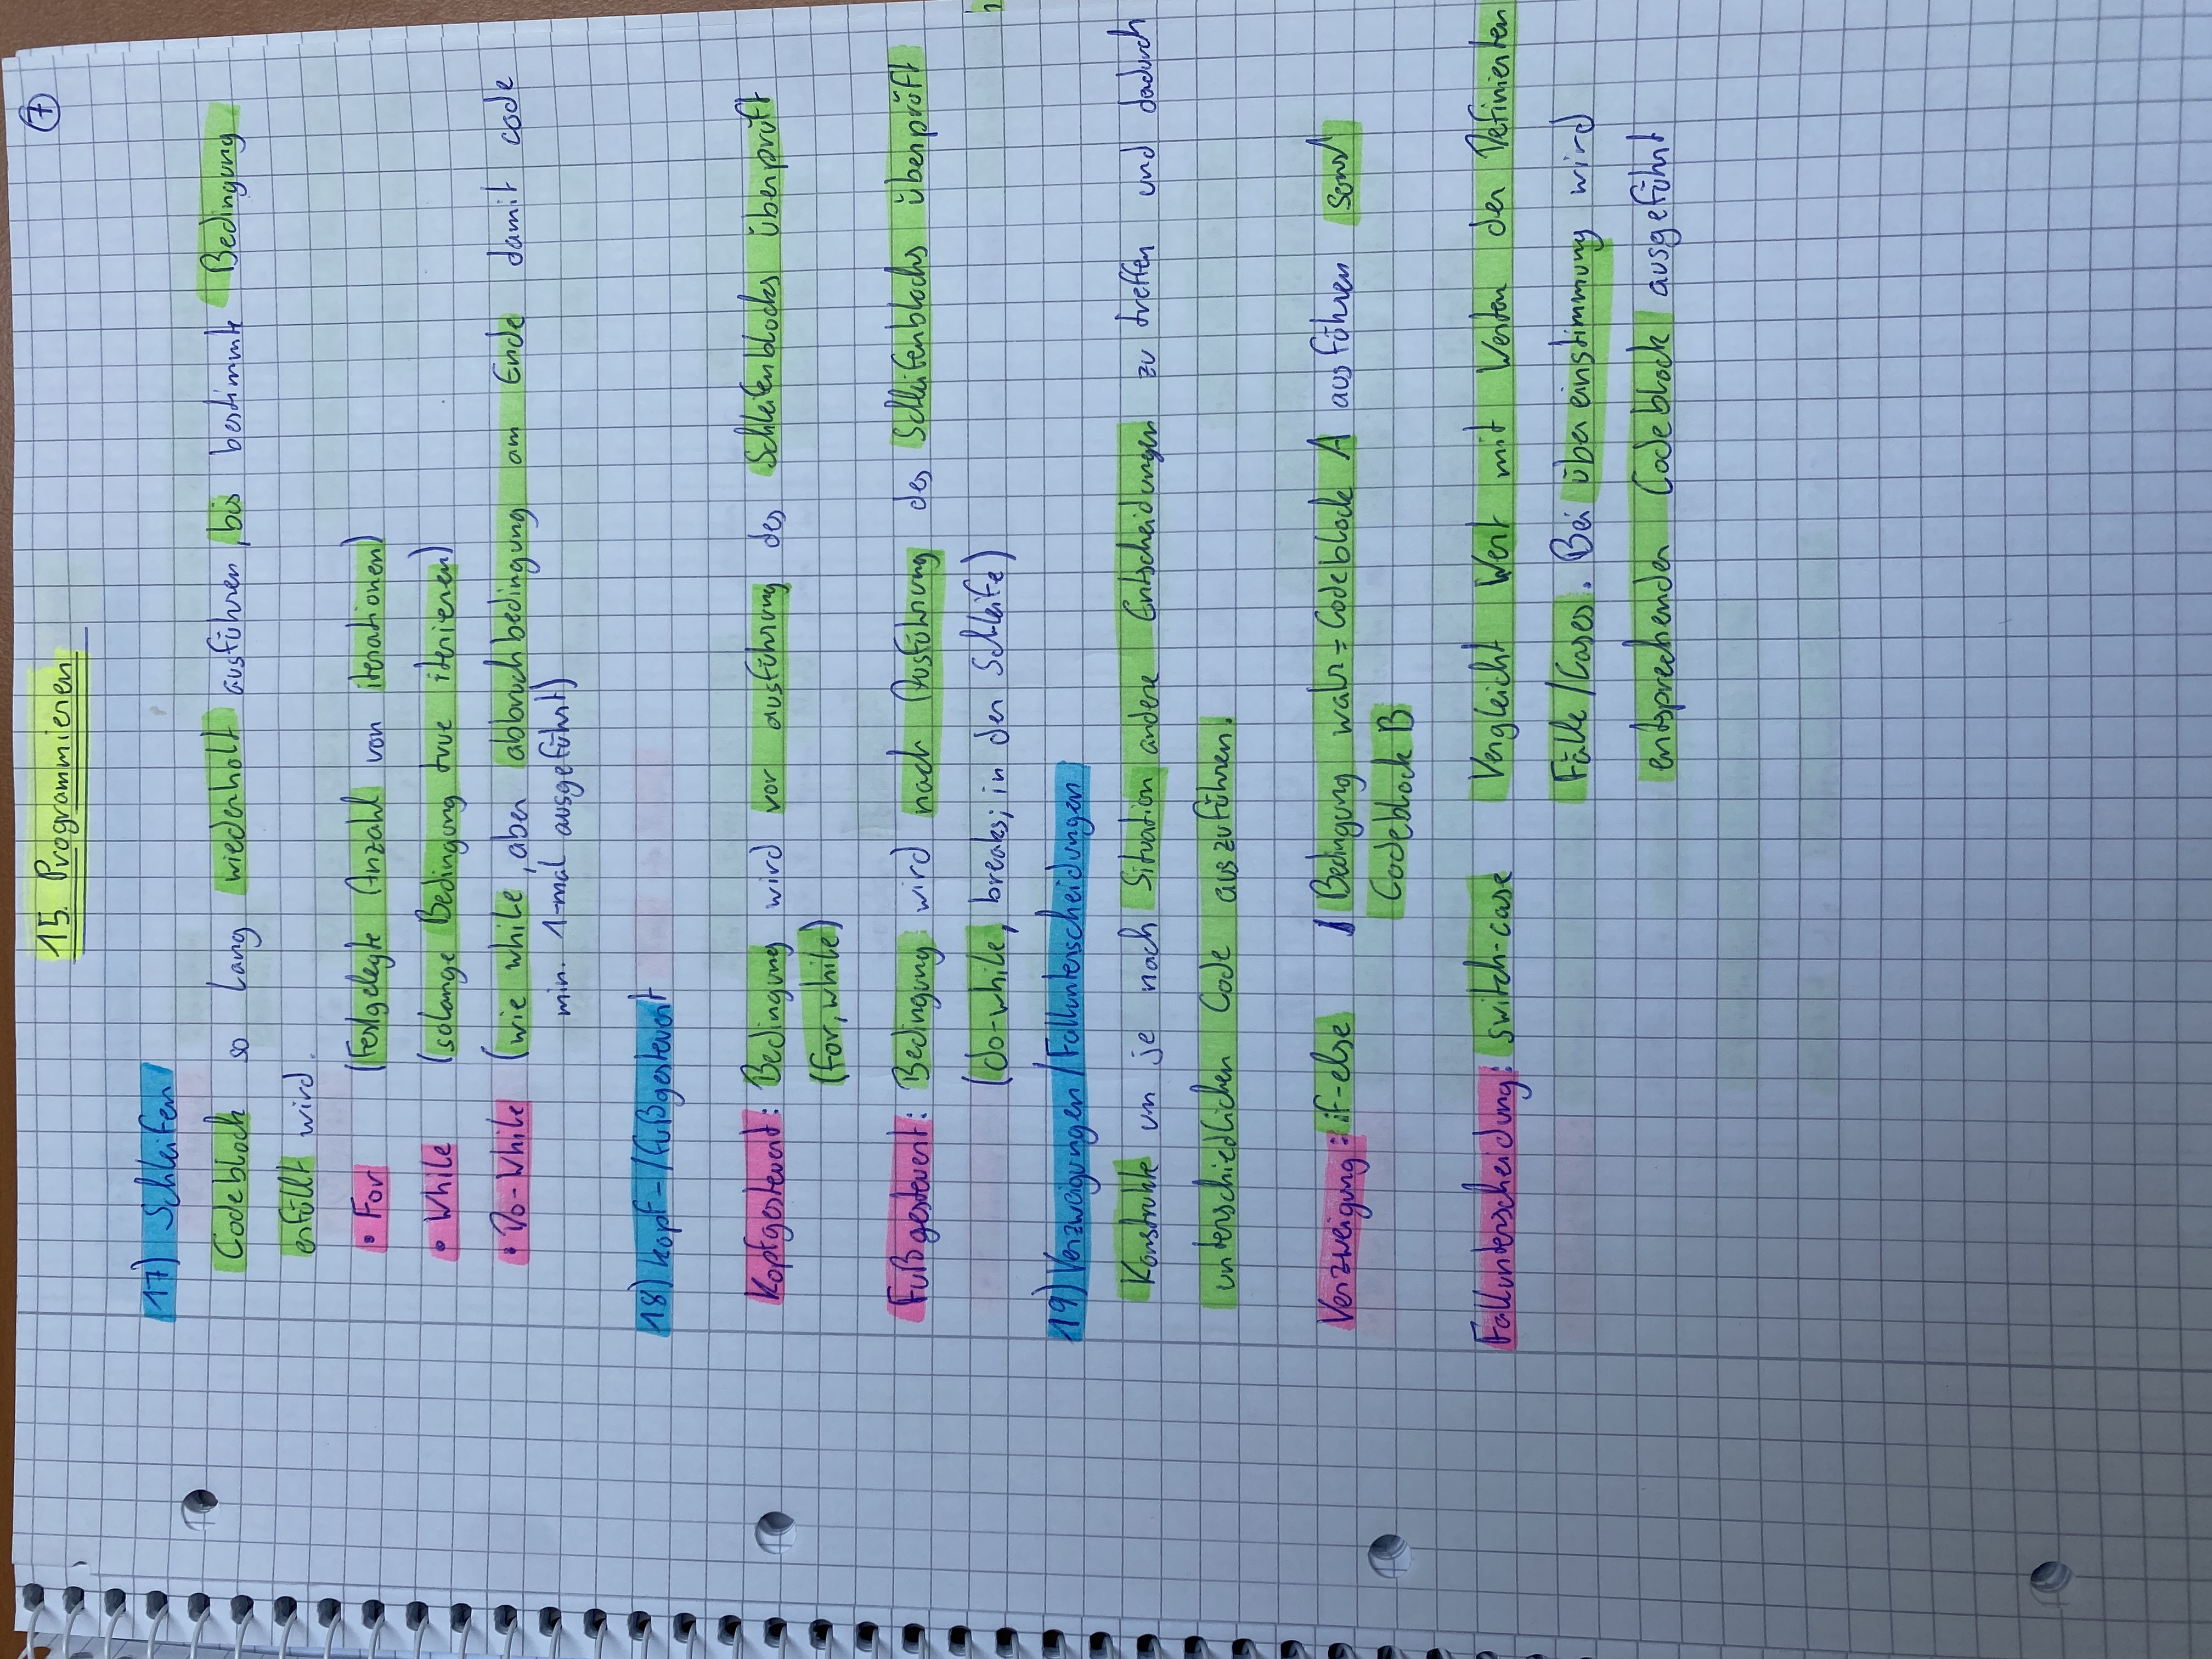 15. Programmieren
7
17) Schleifen
Codeblock so lang wiederholt ausführen, bis bestimmte Bedingung
erfüllt wird.
• For (Festgelegte Anzahl von iterationen)
• While (solange Bedingung true iterieren)
• Do-While (wie while, aber abbruchbedingung am Ende damit code
min. 1-mal ausgeführt)
18) kopf-/fußgesteuert
Kopfgesteuert: Bedingung wird vor ausführung des Schleifenblocks überprüft
(for, while)
Fußgesteuert: Bedingung wird nach Ausführung des Schleifenblocks überprüft
(do-while, breaks; in der Schleife)
19) Verzweigungen/Fallunterscheidungen
Konstrukte um je nach Situation andere Entscheidungen zu treffen und dadurch
unterschiedlichen Code auszuführen.
Verzweigung: if-else Bedingung wahr = Codeblock A ausführen sonst
Codeblock B
Fallunterscheidung: switch-case Vergleicht Wert mit Werten der Definierten
Fälle/Cases. Bei übereinstimmung wird
entsprechender Codeblock ausgeführt